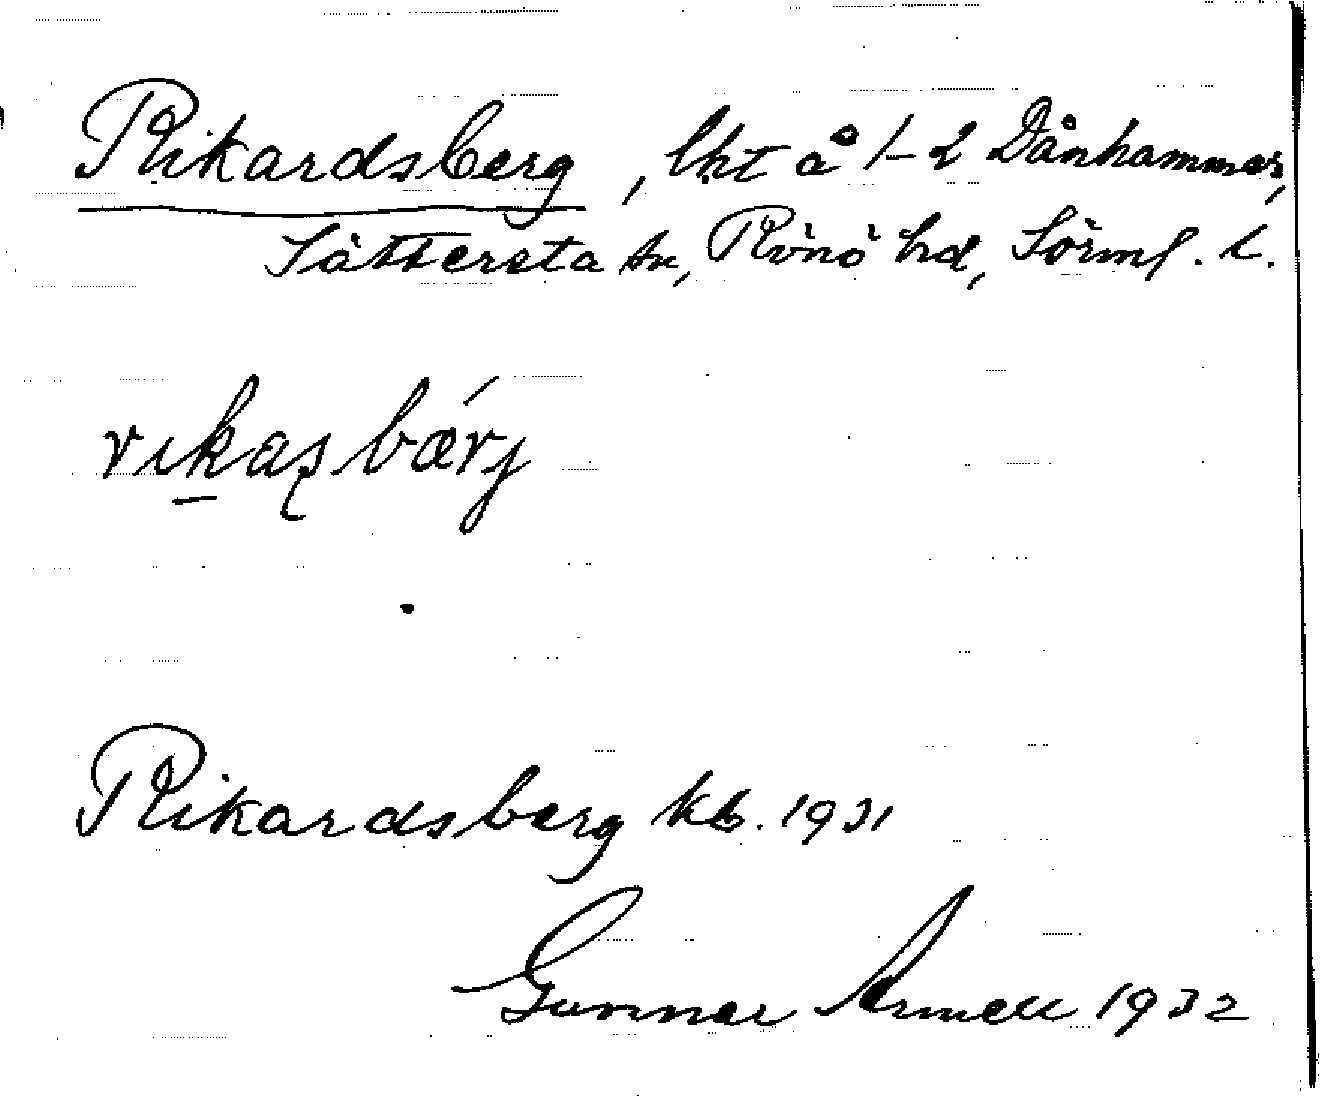 Rikardsberg, lht å 1-2 Dånhammar,
Sättersta sn, Rönö hd, Sörml. l.
rikaʂbærj
Rikardsberg kb. 1931
Gunnar Arnell 1932